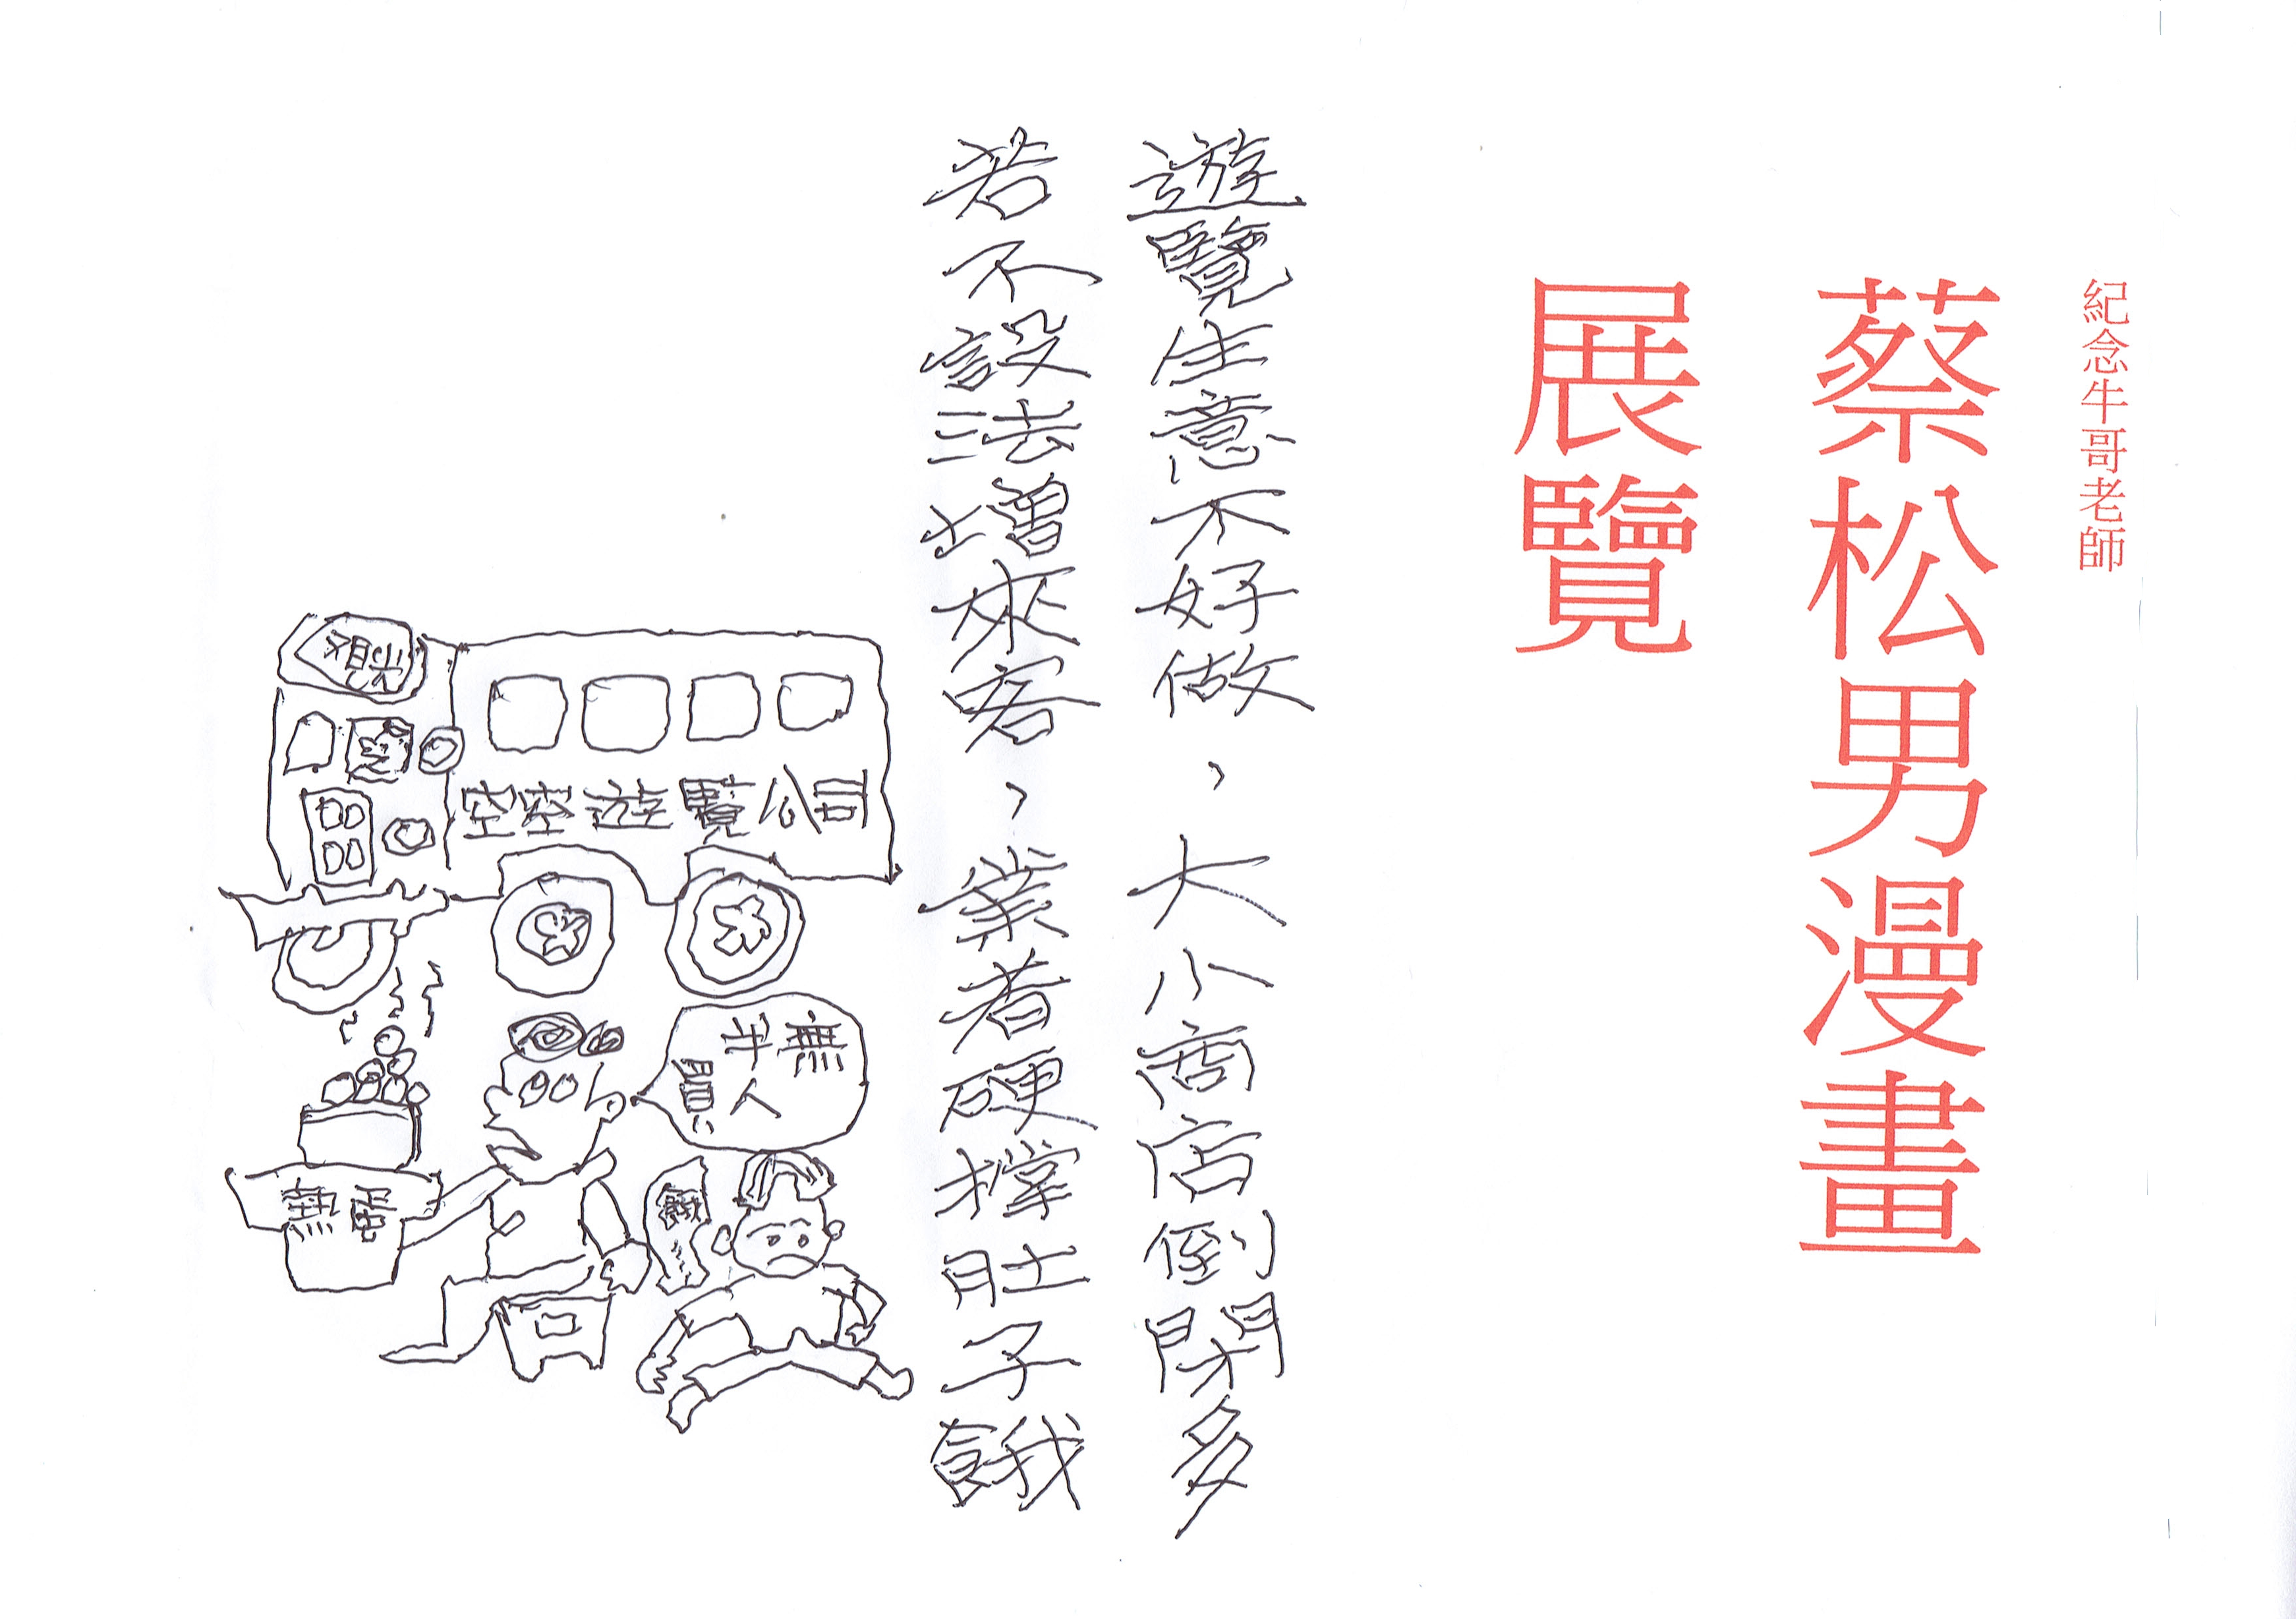 紀念牛哥老師
蔡松男漫畫
展覽
遊覽生意不好做，大小商店倒閉多
若不設法增來客，業者硬撐肚子餓
觀光
空空遊覽公司
無
半人
買
熱蛋
餓